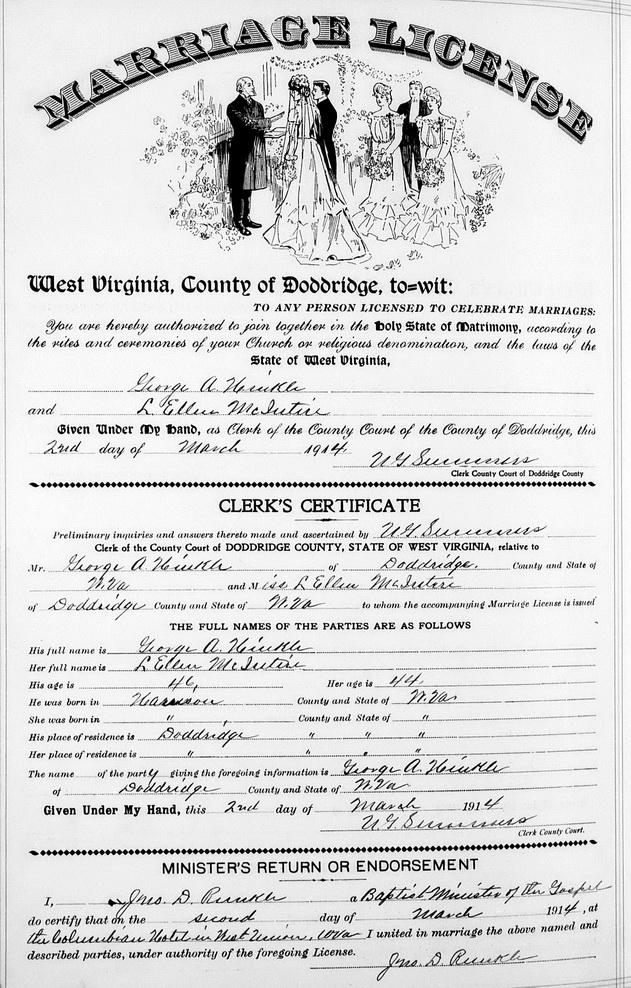 MARRIAGE LICENSE
West Virginia, County of Doddridge, to=wit:
TO ANY PERSON LICENSED TO CELEBRATE MARRIAGES:
You are hereby authorized to join together in the Holy State of Matrimony, according to
the rites and ceremonies of your Church or religious denomination, and the laws of the
State of West Virginia,
George A. Hinkle
and L. Ellen McIntire
Given Under My Hand, as Clerk of the County Court of the County of Doddridge, this
2nd day of March 1914.
W G Summers
Clerk County Court of Doddridge County
CLERK'S CERTIFICATE
Preliminary inquiries and answers thereto made and ascertained by W. G. Summers
Clerk of the County Court of DODDRIDGE COUNTY, STATE OF WEST VIRGINIA, relative to
Mr. George A. Hinkle of Doddridge. County and State of
W. Va and Miss L Ellen McIntire
of Doddridge County and State of W. Va to whom the accompanying Marriage License is issued
THE FULL NAMES OF THE PARTIES ARE AS FOLLOWS
His full name is George A. Hinkle
Her full name is L Ellen McIntire
His age is 46, Her age is 44.
He was born in Harrison County and State of W. Va.
She was born in " , County and State of "
His place of residence is Doddridge " " "
Her place of residence is " " " "
The name of the party giving the foregoing information is George A. Hinkle
of Doddridge County and State of W. Va
Given Under My Hand, this 2nd day of March 1914
W. G. Summers
Clerk County Court.
MINISTER'S RETURN OR ENDORSEMENT
I, Jno. D. Runkle a Baptist Minister of the Gospel
do certify that on the second day of March 1914, at
the Columbian Hotel in West Union, W Va I united in marriage the above named and
described parties, under authority of the foregoing License.
Jno. D. Runkle